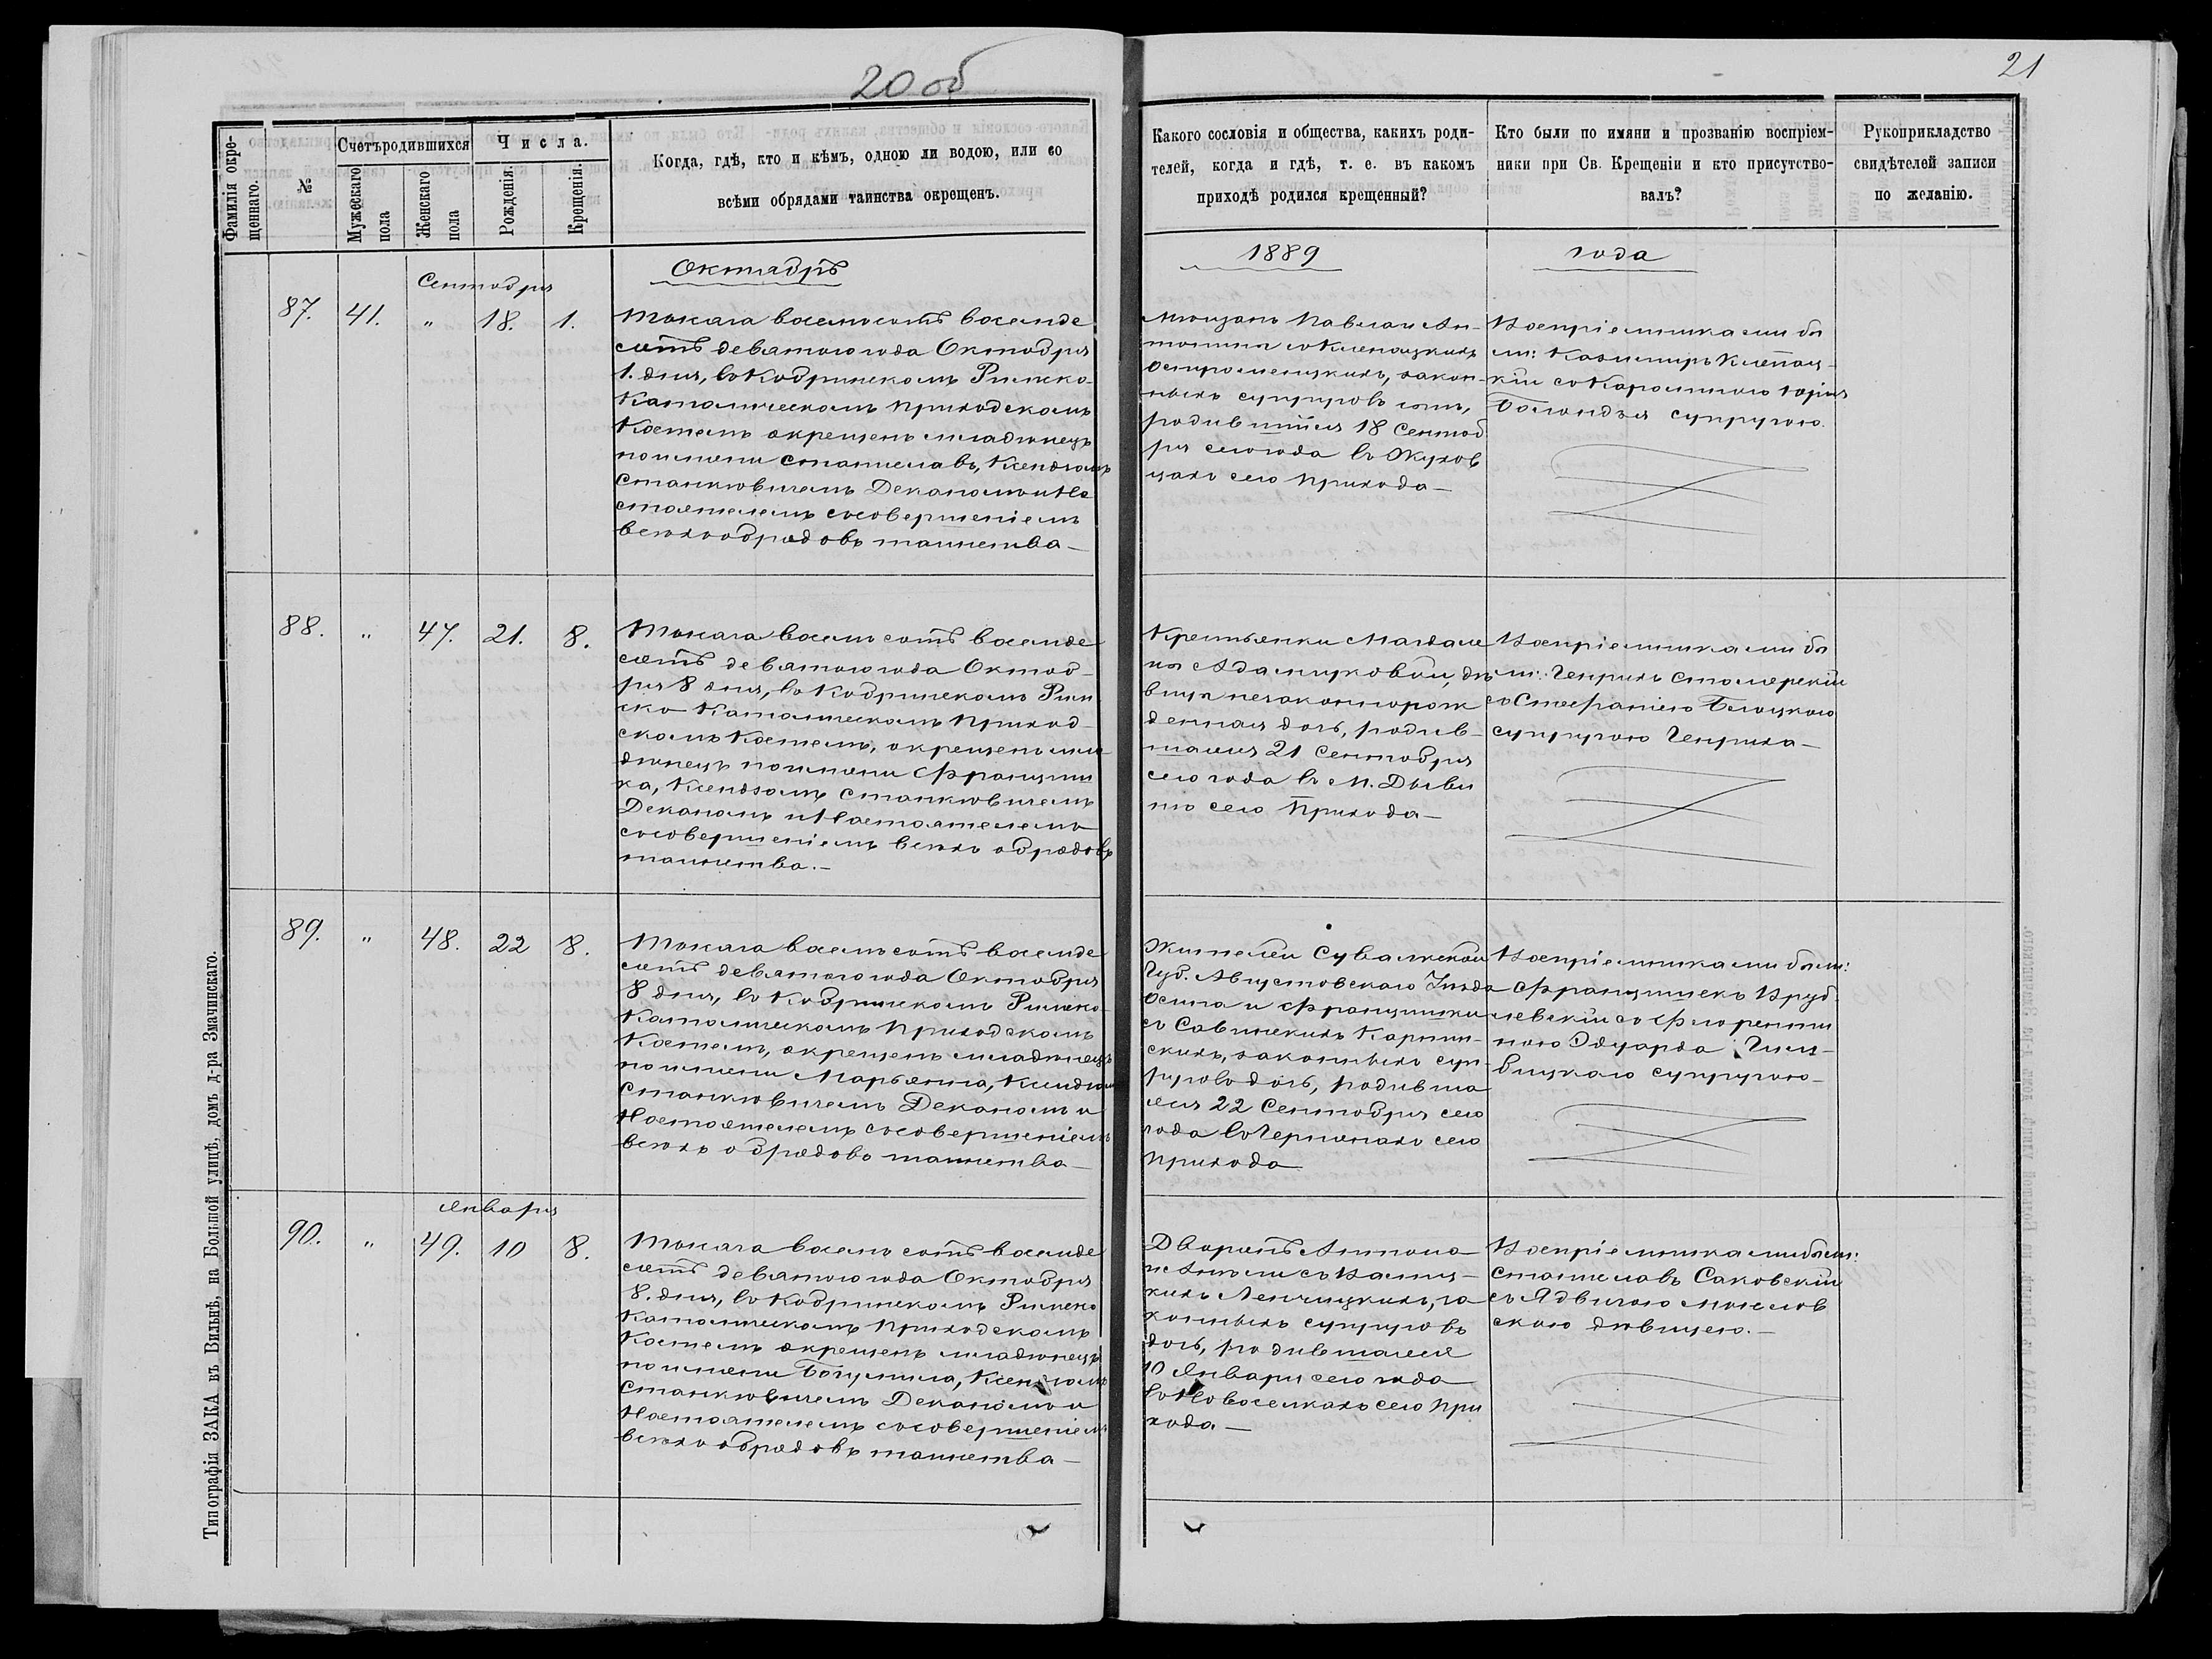 20 об
21
Фамилія окре-
щеннаго.
№
Счетъ родившихся
Мужескаго
пола
Женскаго
пола
Числа.
Рожденія.
Крещенія.
Когда, гдѣ, кто и кѣмъ, одною ли водою, или со
всѣми обрядами таинства окрещенъ.
Какого сословія и общества, какихъ роди-
телей, когда и гдѣ, т. е. въ какомъ
приходѣ родился крещенный?
Кто были по имяни и прозванію воспріем-
ники при Св. Крещеніи и кто присутство-
валъ?
Рукоприкладство
свидѣтелей записи
по желанію.
Октябрь
1889
года
Сентября
87. 41. " 18. 1.
Тысяча восемьсотъ восемде
сятъ девятого года Октября
1. дня, въ Кобринскомъ Римско-
Католическомъ приходскомъ
Костелѣ окрещенъ младѣнецъ
по имени Станиславъ, Ксендзомъ
Станкевичемъ Деканомъ и На
стоятелемъ съ совершеніемъ
всѣхъ обрядовъ таинства —
Мѣщанъ Павла и Ан-
тонины съ Клепацкихъ
Остромецкихъ, закон-
ныхъ супруговъ сынъ,
родившійся 18 Сентяб
ря сего года въ Жухов
цахъ сего прихода —
Воспріемниками бы
ли: Казимиръ Клепац-
кій съ Каролиною Юрія
супругою.
88. " 47. 21. 8.
Тысяча восемь сотъ восемде
сятъ девятого года Октяб-
ря 8 дня, въ Кобринскомъ Рим
ско-Католическомъ приход-
скомъ Костелѣ, окрещенъ мла
дѣнецъ по имени Францишка,
Ксендзомъ Станкевичемъ
Деканомъ и Настоятелемъ
съ совершеніемъ всѣхъ обрядовъ
таинства. —
Крестьянки Магдале
ны Адамчуковой, дѣ
вицы незаконнорож
денная дочь, родив-
шаяся 21 Сентября
сего года въ М. Дыви
нѣ сего прихода —
Воспріемниками бы
ли: Генрихъ Столярскій
съ Стефаніею
супругою Генриха —
89. " 48. 22 8.
Тысяча восемь сотъ восемде
сятъ девятого года Октября
8 дня, въ Кобринскомъ Римско-
Католическомъ приходскомъ
Костелѣ, окрещенъ младѣнецъ
по имени Марьянна, Ксендзомъ
Станкевичемъ Деканомъ и
Настоятелемъ съ совершеніемъ
всѣхъ обрядовъ таинства —
Жителей Сувалкской
Губ. Августовскаго Уѣзда
Осипа и Францишки
съ Савинскихъ Карпин-
скихъ, законныхъ суп-
руговъ дочь, родивша
яся 22 Сентября сего
года въ сего
прихода
Воспріемниками были:
Францишекъ Вруб-
левскій съ Флоренти
ною Эдуарда
супругою —
Января
90. " 49. 10 8.
Тысяча восемь сотъ восемде
сятъ девятого года Октября
8. дня, въ Кобринскомъ Римско
Католическомъ приходскомъ
Костелѣ окрещенъ младѣнецъ
по имени Богумила, Ксендзомъ
Станкевичемъ Деканомъ и
Настоятелемъ съ совершеніемъ
всѣхъ обрядовъ таинства —
Дворянъ Антона
и Анели съ
кихъ Ленчицкихъ, за
конныхъ супруговъ
дочь, родившаяся
10 Января сего года
въ Новоселкахъ сего при
хода —
Воспріемниками были:
Станиславъ Саковскій
съ Ядвигою
скою дѣвицею. —
Типографія ЗАКА въ Вильнѣ, на Большой улицѣ, домъ д-ра Змачинскаго.